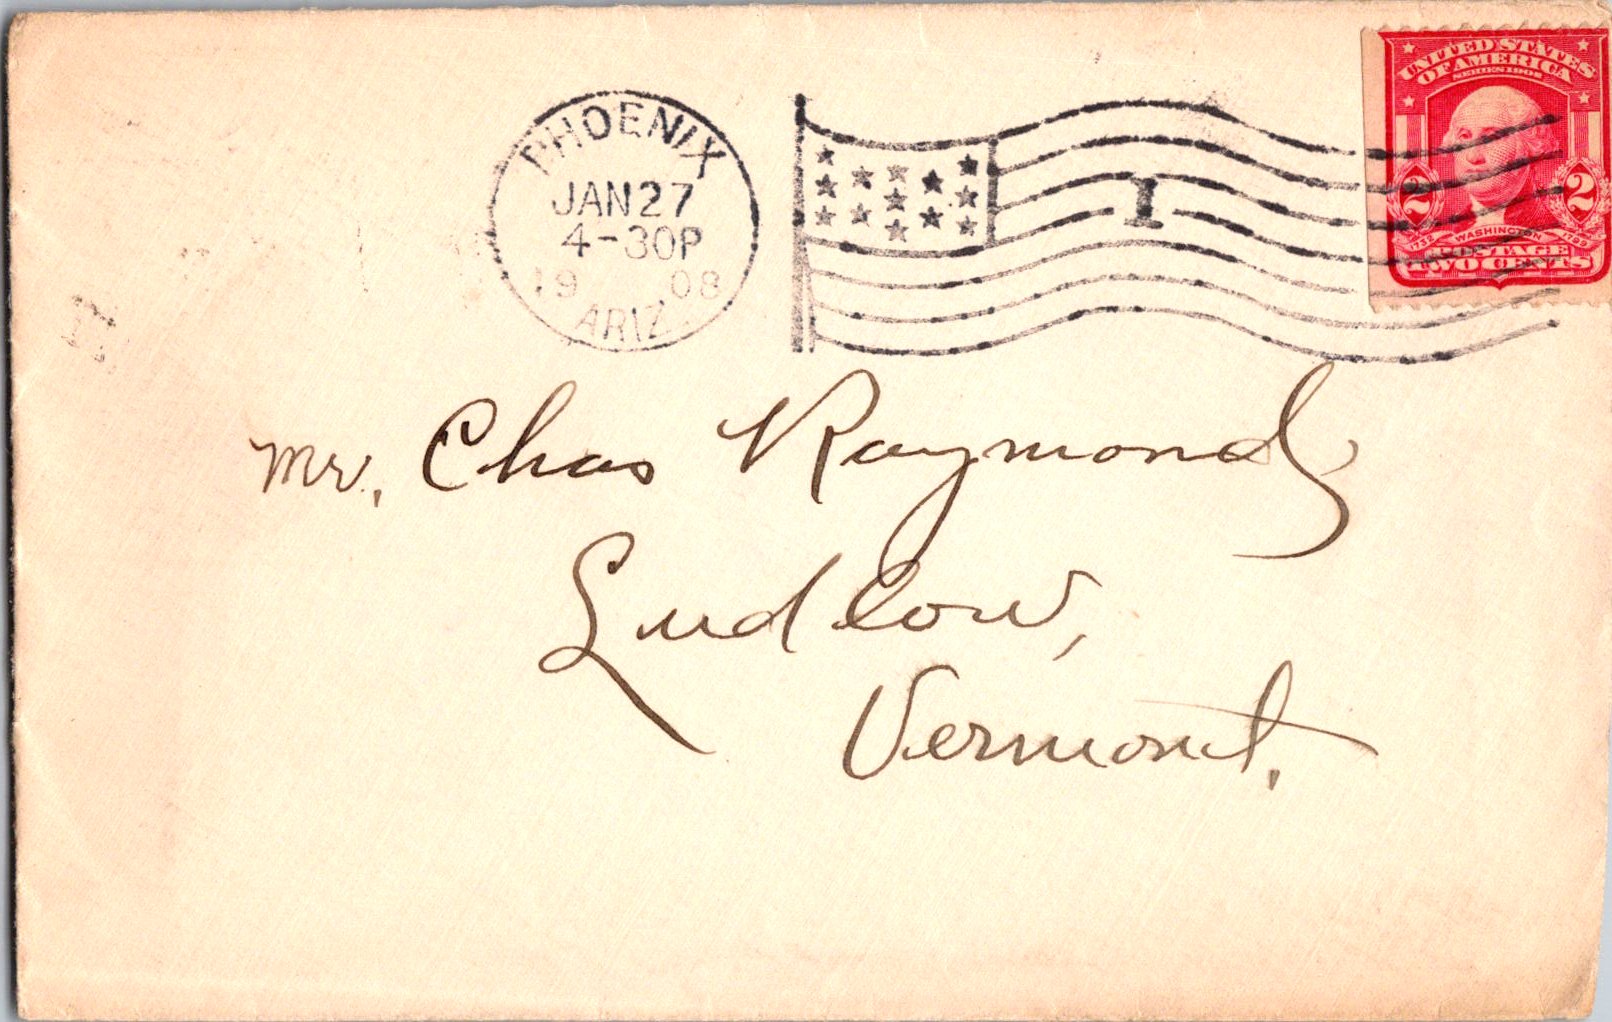 PHOENIX
JAN 27
4-30P
19 08
ARIZ.
I
UNITED STATES
OF AMERICA
SERIES 1902
2 2
1732 WASHINGTON 1799
POSTAGE
TWO CENTS
Mr. Chas Raymond
Ludlow,
Vermont.